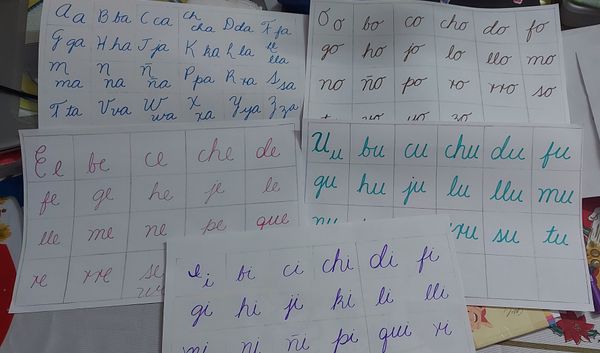 Aa Bba Cca Ch cha Dda Ffa
Gga Hha Jja Kka Lla ll lla
m ma n na ñ ña Ppa Rra Ssa
Tta Vva Ww wa X xa Yya Zza
Oo bo co cho do fo
go ho jo lo llo mo
no ño po ro rro so
to vo yo zo
Ee be ce che de
fe ge he je le
lle me ne pe que
re rre se
Uu bu cu chu du fu
gu hu ju lu llu mu
nu rru su tu
i bi ci chi di fi
gi hi ji ki li lli
mi ni ñi pi qui ri